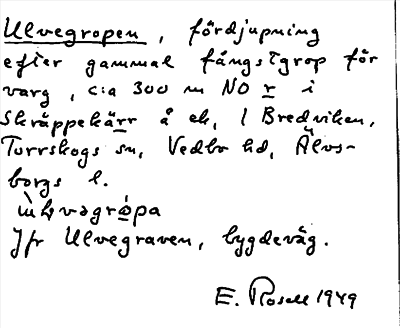 Ulvegropen, fördjupning
efter gammal fångstgrop för
varg, c:a 300 m NO r i
Skräppekärr å ek, l Bredviken,
Torrskogs sn, Vedbo hd, Älvs-
borgs l.
Jfr Ulvegraven, bygdeväg.
E. Rosell 1949